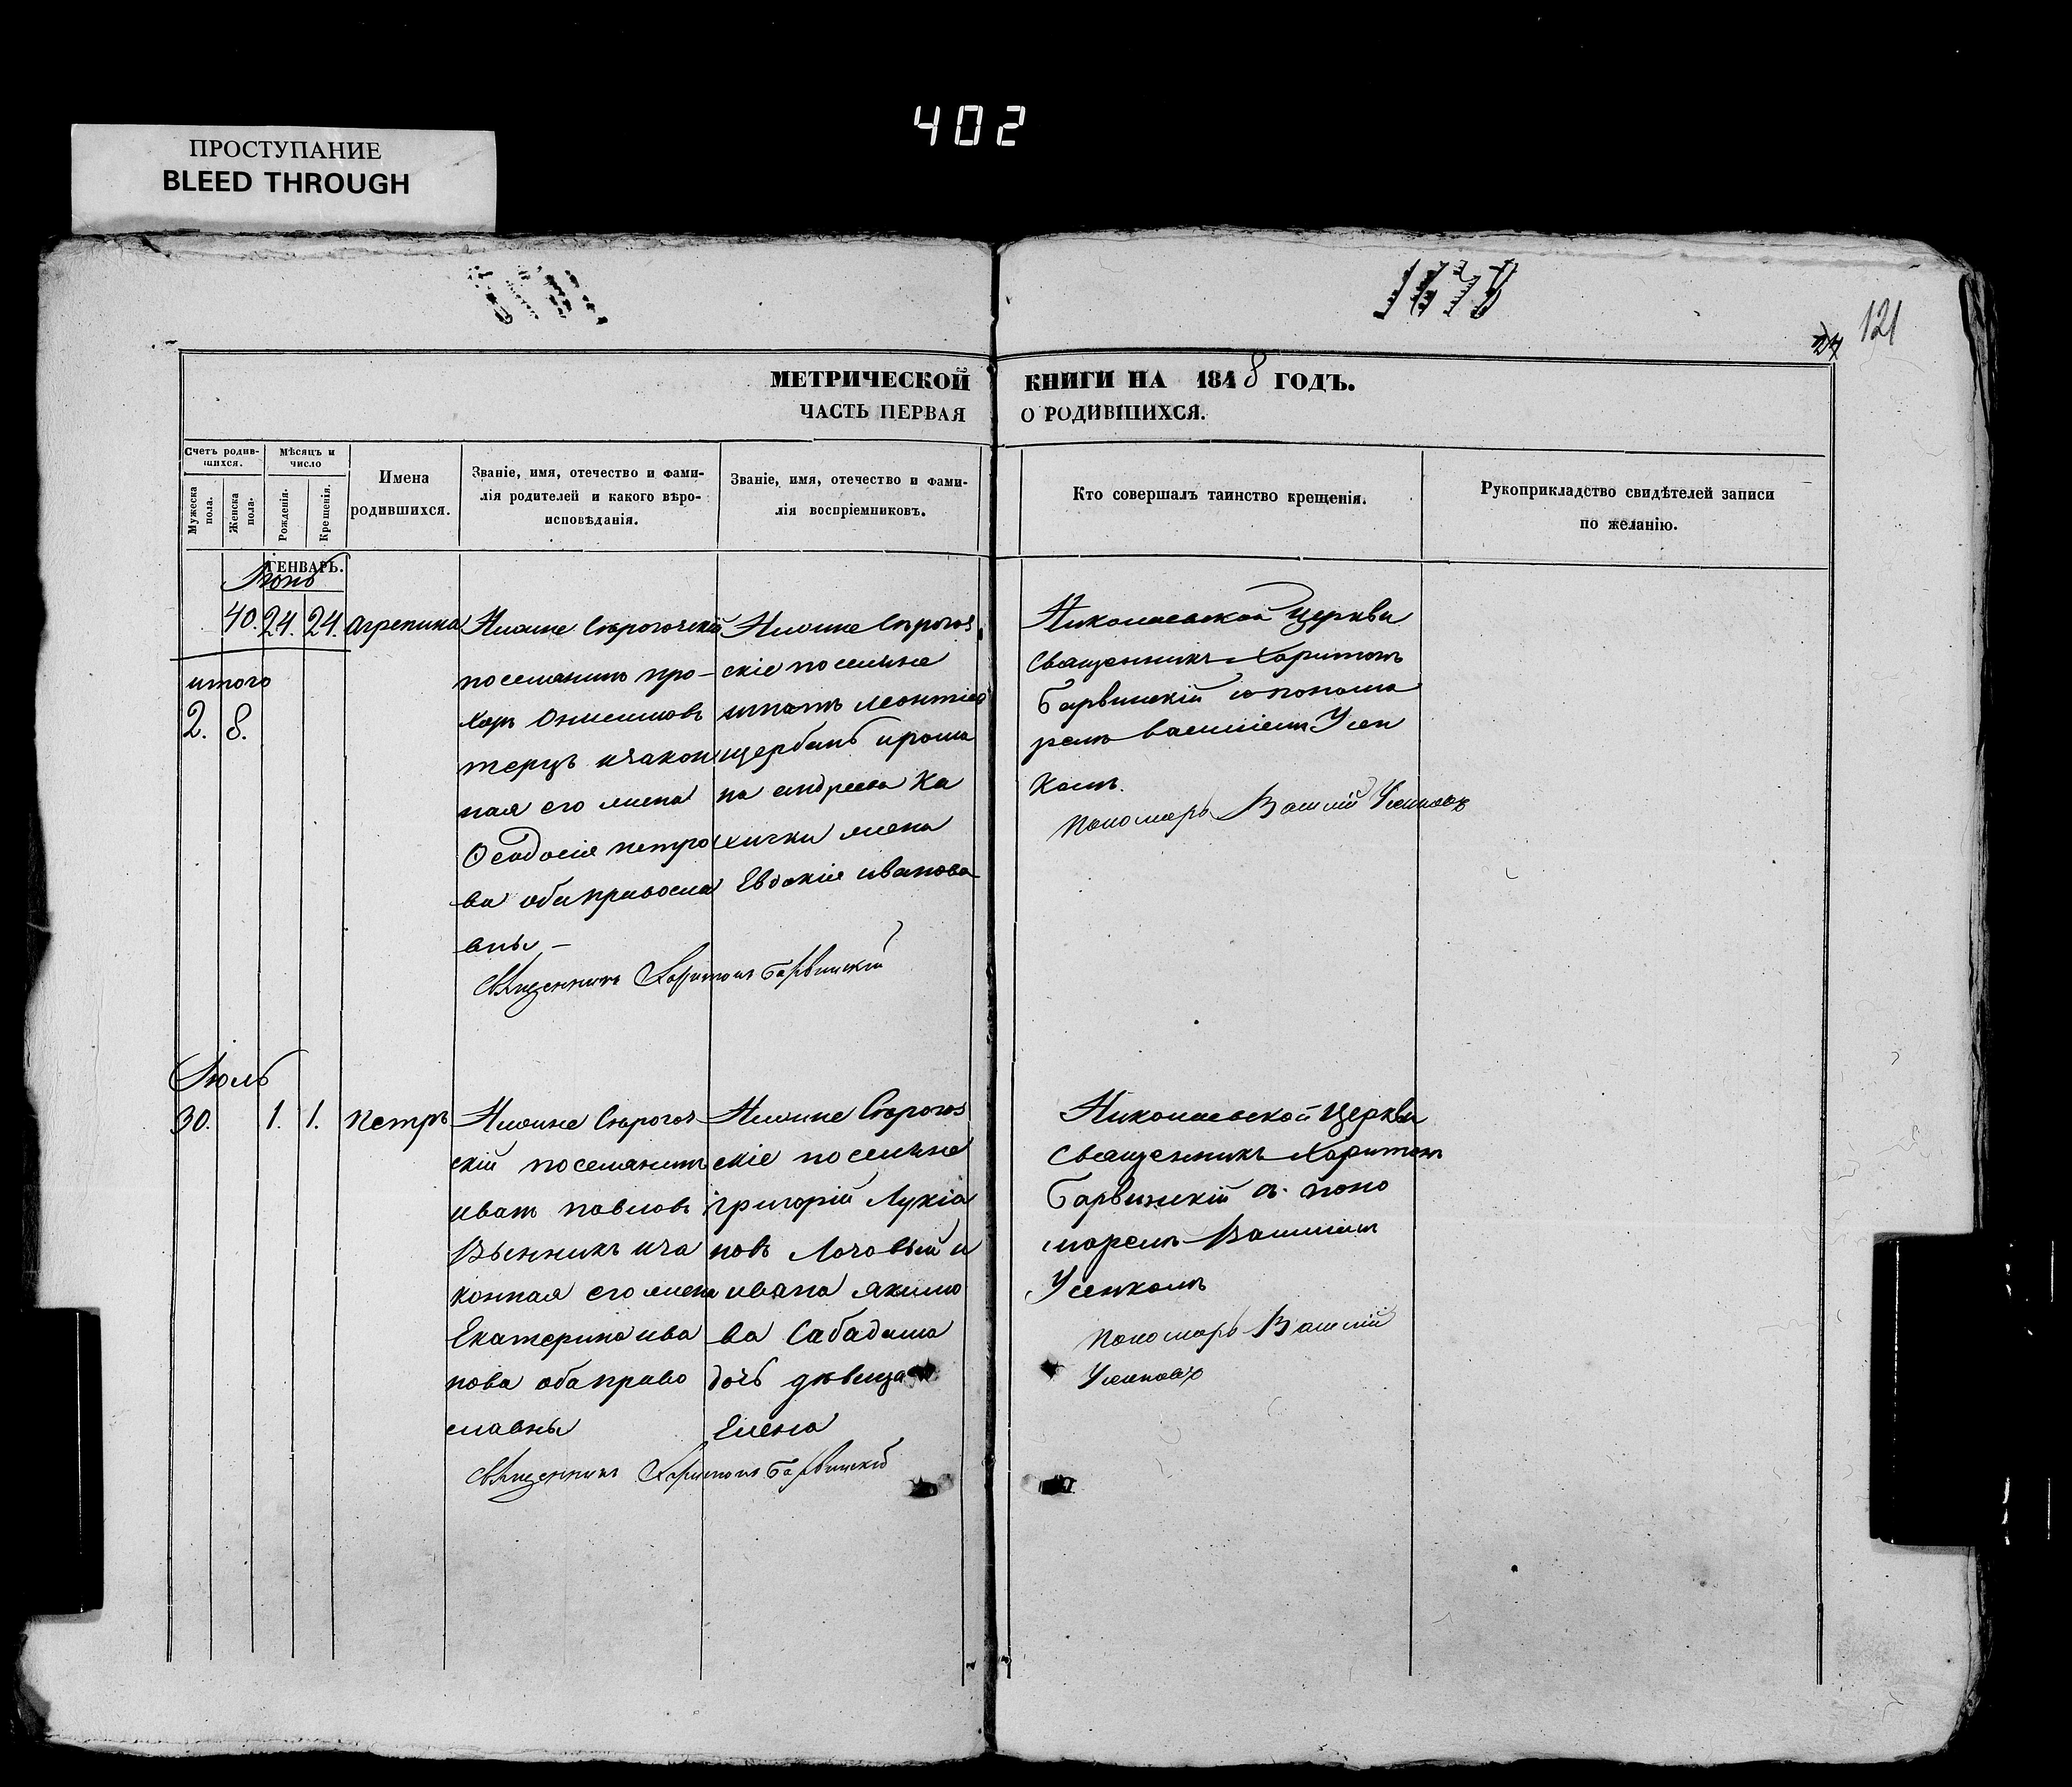 402
ПРОСТУПАНИЕ
BLEED THROUGH
121
МЕТРИЧЕСКОЙ КНИГИ НА 1848 ГОДЪ.
ЧАСТЬ ПЕРВАЯ О РОДИВШИХСЯ.
Счетъ родившихся.
Мужеска пола.
Женска пола.
Мѣсяцъ и число
Рожденія.
Крещенія.
Имена
родившихся.
Званіе, имя, отечество и фами-
лія родителей и какого вѣро-
исповѣданія.
Званіе, имя, отечество и фами-
лія воспріемниковъ.
Кто совершалъ таинство крещенія.
Рукоприкладство свидѣтелей записи
по желанію.
ГЕНВАРЬ.
Июнь
40. 24. 24. Агрепина
итого
2. 8.
Нижне Сѣрогозскій
поселянинъ про-
хоръ Онисимовъ
и закон
ная его жена
Ѳеодосія петро
ва оба правосла
вны –
Священникъ Харитонъ Барвинскій
Нижне Сѣрогоз
скіе поселяне
игнатъ Леонтіев
щербань и рома
на андреева Ка
жена
Евдокія иванова
Николаевской Церкви
Священникъ Харитонъ
Барвинскій с понома
ремъ василіем Усен
комъ.
Пономарь Василій Усенковъ
Июль
30. 1. 1. Петръ
Нижне Сѣрогоз
скій поселянинъ
иванъ павловъ
Вѣнникъ и за
конная его жена
Екатерина ива
нова оба право
славны
Священникъ Харитонъ Барвинскій
Нижне Сѣрогоз
скіе поселяне
григорій Лукіа
новъ Лозовый и
ивана якимо
ва Сабадаша
дочь дѣвица
Елена
Николаевской Церкви
Священникъ Харитонъ
Барвинскій съ поно
маремъ Василіем
Усенкомъ
Пономарь Василій
Усенковъ